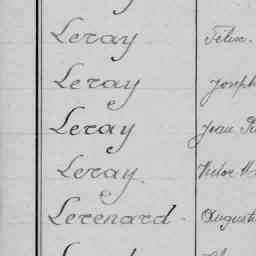 Leray Félix.
Leray Joseph
Leray Jean
Leray Victor
Lerenard Auguste